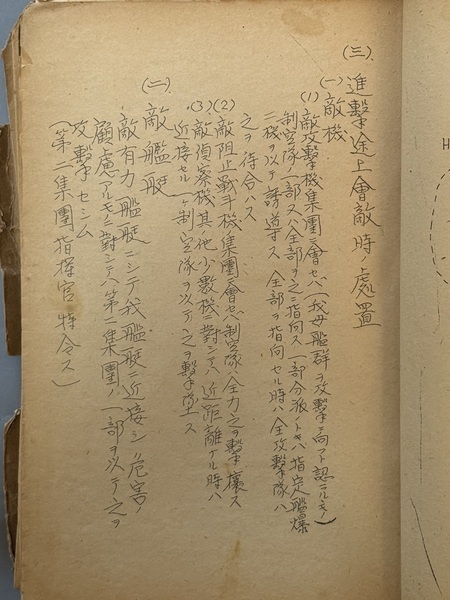 (三) 進撃途上會敵時ノ處置
(一) 敵機
(1) 敵攻撃機集團ニ會セバ(我母艦群ヲ攻撃ニ向フト認ムルモノ)
制空隊ノ一部又ハ全部ヲ之ニ指向ス(一部分派ノトキハ指定艦爆
二機ヲ以テ誘導ス 全部ヲ指向セル時ハ全攻撃隊ハ
之ヲ待合ハス
(2) 敵阻止戰斗機集團ニ會セバ制空隊ハ全力之ヲ撃壊ス
(3) 敵偵察機其ノ他少數機ニ對シテハ近距離ナル時ハ
近接セル制空隊ヲ以テ之ヲ撃墜ス
(二) 敵艦艇
敵有力艦艇ニシテ我艦艇ニ近接シ危害ノ
顧慮アルモノニ對シテハ第二集團ノ一部ヲ以テ之ヲ
攻撃セシム
(第二集團指揮官特令ス)
H